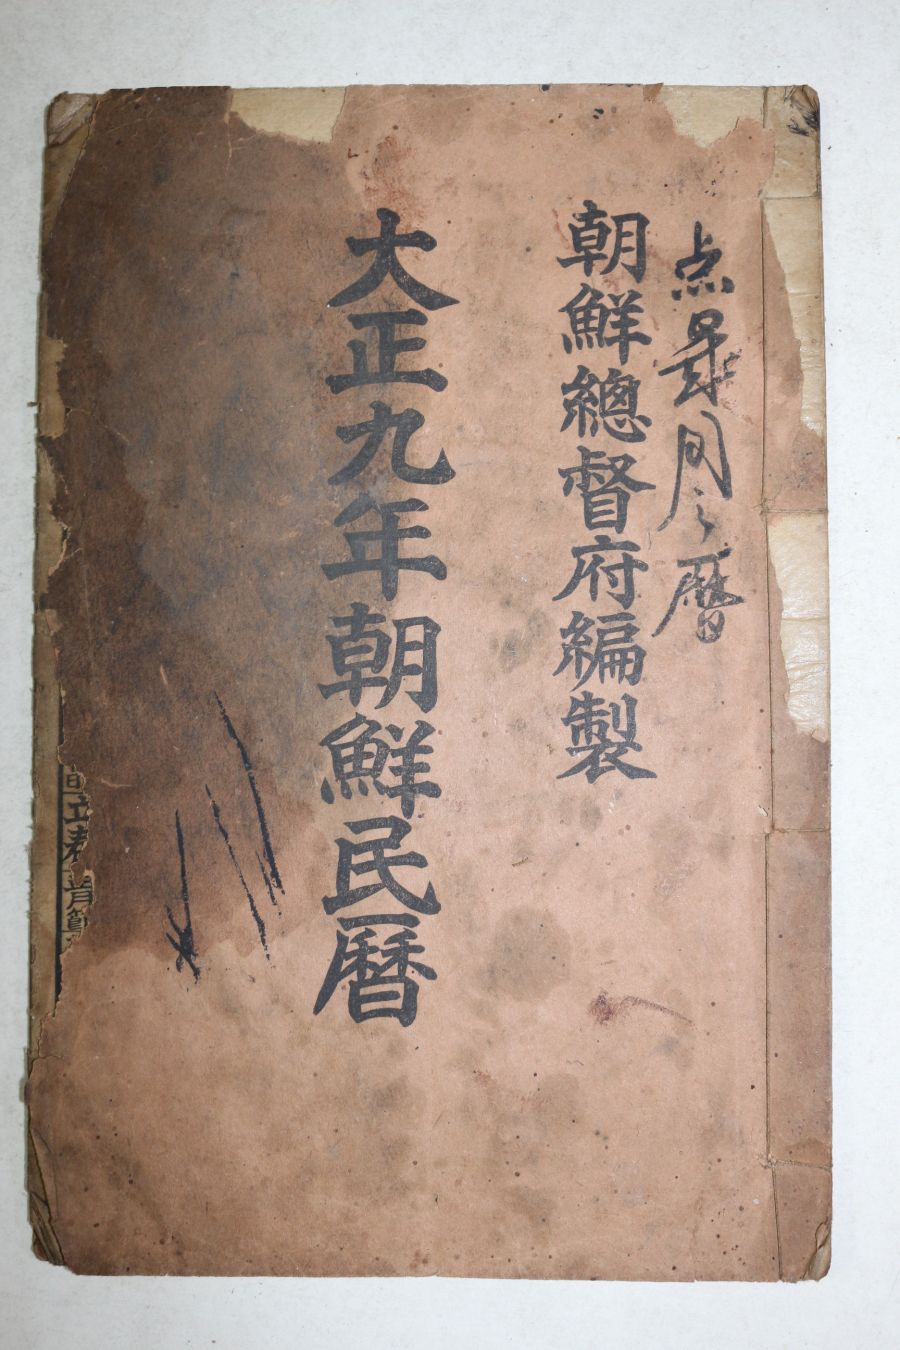 点 同 之 曆
朝鮮總督府編製
大正九年朝鮮民曆
立春